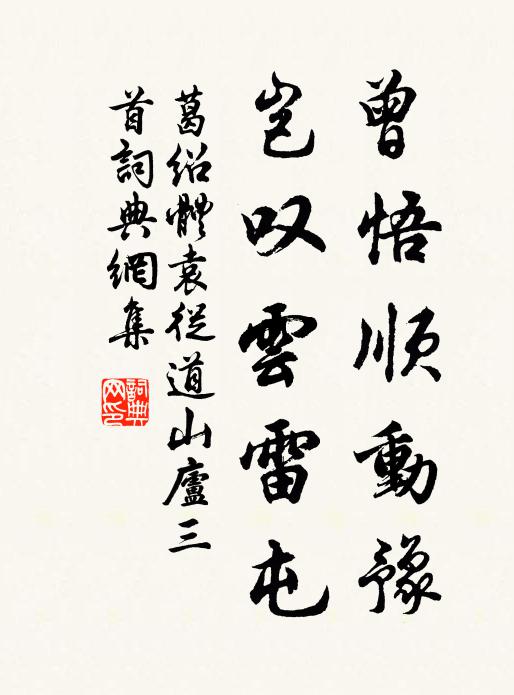 曾悟順動豫
岂叹雲雷屯
葛绍體袁從道山廬三
首詞典網集
詞典
网印